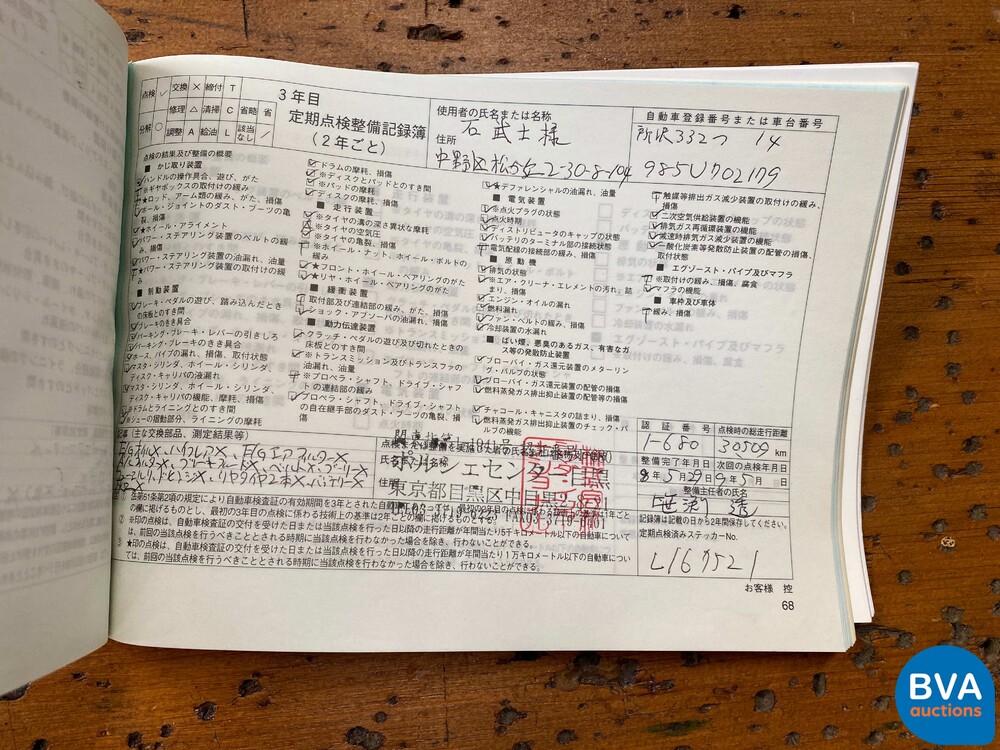 点検 ✓ 交換 × 締付 T
修理 △ 清掃 C 省略 省
分解 ○ 調整 A 給油 L 該当なし /
3年目
定期点検整備記録簿
(2年ごと)
使用者の氏名または名称
石 武士 様
住所
自動車登録番号または車台番号
所沢332つ 14
点検の結果及び整備の概要
■ かじ取り装置
ハンドルの操作具合、遊び、がた
※ギヤボックスの取付けの緩み
★ロッド、アーム類の緩み、がた、損傷
ボール・ジョイントのダスト・ブーツの亀裂、損傷
★ホイール・アライメント
パワー・ステアリング装置のベルトの緩み、損傷
パワー・ステアリング装置の油漏れ、油量
★パワー・ステアリング装置の取付けの緩み
■ 制動装置
ブレーキ・ペダルの遊び、踏み込んだときの床板とのすき間
ブレーキのきき具合
パーキング・ブレーキ・レバーの引きしろ
パーキング・ブレーキのきき具合
ホース、パイプの漏れ、損傷、取付状態
マスタ・シリンダ、ホイール・シリンダ、ディスク・キャリパの液漏れ
マスタ・シリンダ、ホイール・シリンダ、ディスク・キャリパの機能、摩耗、損傷
※ドラムとライニングとのすき間
※シューの摺動部分、ライニングの摩耗
ドラムの摩耗、損傷
※ディスクとパッドとのすき間
※パッドの摩耗
ディスクの摩耗、損傷
■ 走行装置
※タイヤの溝の深さ異状な摩耗
※タイヤの空気圧
※タイヤの亀裂、損傷
※ホイール・ナット、ホイール・ボルトの緩み
★フロント・ホイール・ベアリングのがた
★リヤ・ホイール・ベアリングのがた
■ 緩衝装置
取付部及び連結部の緩み、がた、損傷
ショック・アブソーバの油漏れ、損傷
■ 動力伝達装置
クラッチ・ペダルの遊び及び切れたときの床板とのすき間
※トランスミッション及びトランスファの油漏れ、油量
※プロペラ・シャフト、ドライブ・シャフトの連結部の緩み
プロペラ・シャフト、ドライブ・シャフトの自在継手部のダスト・ブーツの亀裂、損傷
★デファレンシャルの油漏れ、油量
■ 電気装置
※点火プラグの状態
点火時期
ディストリビュータのキャップの状態
バッテリのターミナル部の接続状態
電気配線の接続部の緩み、損傷
■ 原動機
排気の状態
※エア・クリーナ・エレメントの汚れ、詰まり、損傷
エンジン・オイルの漏れ
燃料漏れ
ファン・ベルトの緩み、損傷
冷却装置の水漏れ
■ ばい煙、悪臭のあるガス、有害なガス等の発散防止装置
ブローバイ・ガス還元装置のメターリング・バルブの状態
ブローバイ・ガス還元装置の配管の損傷
燃料蒸発ガス排出抑止装置の配管等の損傷
チャコール・キャニスタの詰まり、損傷
燃料蒸発ガス排出抑止装置のチェック・バルブの機能
触媒等排出ガス減少装置の取付けの緩み、損傷
二次空気供給装置の機能
排気ガス再循環装置の機能
減速時排気ガス減少装置の機能
一酸化炭素等発散防止装置の配管の損傷、取付状態
■ エグゾースト・パイプ及びマフラ
※取付けの緩み、損傷、腐食
マフラの機能
■ 車枠及び車体
緩み、損傷
記事(主な交換部品、測定結果等)
東京都目黒区中目黒
認証番号
1-680
点検時の総走行距離
30509 km
整備完了年月日
8年5月29日
次回の点検年月日
9年5月 日
整備主任者の氏名
笹渕 透
記録簿は記載の日から2年間保存してください。
定期点検済みステッカーNo.
② ※印の点検は、自動車検査証の交付を受けた日または当該点検を行った日以降の走行距離が年間当たり5千キロメートル以下の自動車については、前回の当該点検を行うべきこととされる時期に当該点検を行わなかった場合を除き、行わないことができる。
③ ★印の点検は、自動車検査証の交付を受けた日または当該点検を行った日以降の走行距離が年間当たり1万キロメートル以下の自動車については、前回の当該点検を行うべきこととされる時期に当該点検を行わなかった場合を除き、行わないことができる。
お客様 控
68
BVA
auctions